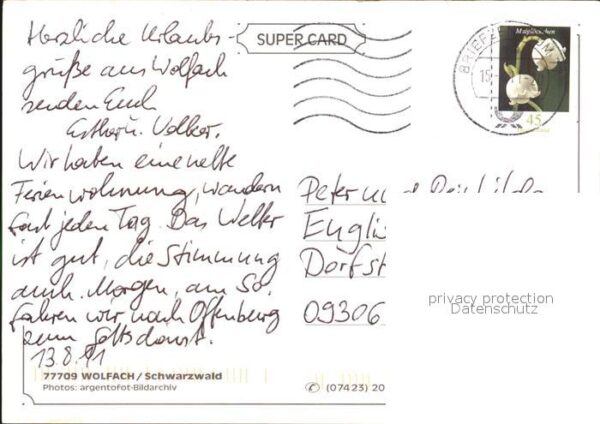 Herzliche Urlaubs-
grüße aus Wolfach
senden Euch
Esther u. Volker.
Wir haben eine nette
Ferienwohnung, wandern
fast jeden Tag. Das Wetter
ist gut, die Stimmung
auch. Morgen, am So.
fahren wir nach Offenburg
zum Gottesdienst.
13.8.11
77709 WOLFACH / Schwarzwald
Photos: argentofot-Bildarchiv
SUPER CARD
BRIEFZ M
15
Maiglöckchen
45
Peter und
Englis
Dorfst
09306
privacy protection
Datenschutz
✆ (07423) 20